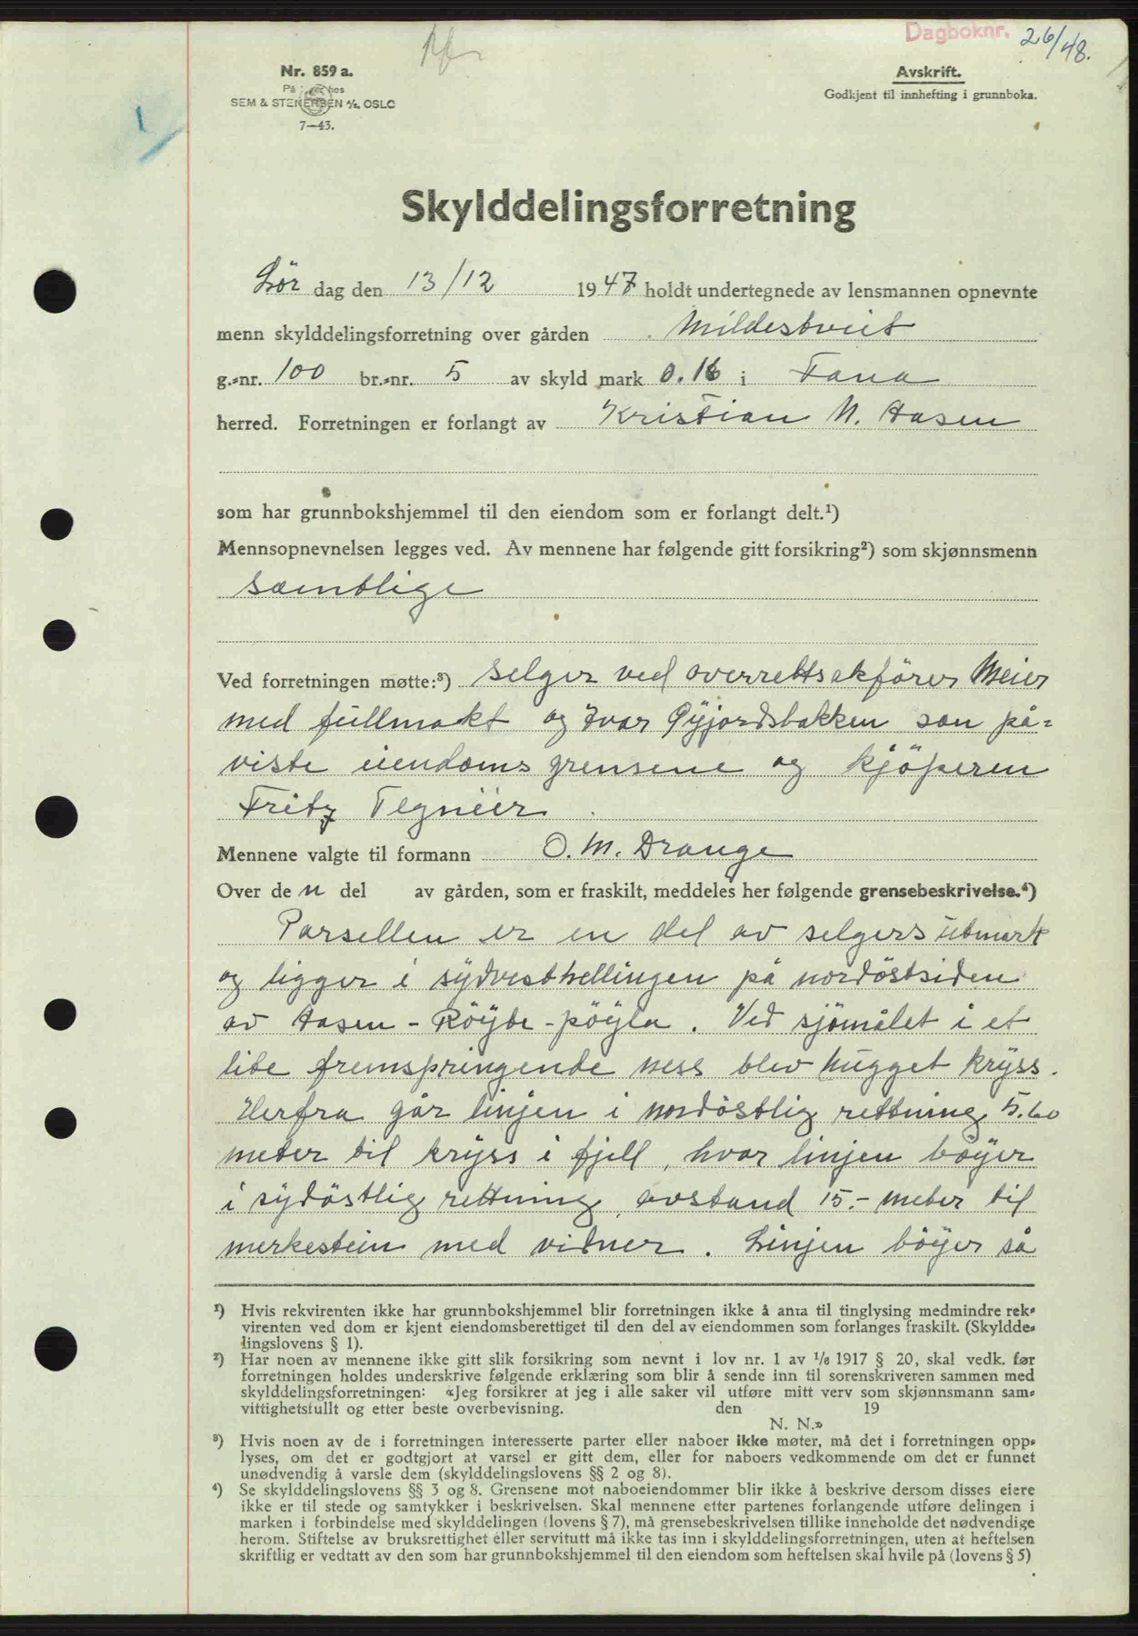 Dagboknr. 26/48.
Nr. 859 a.
SEM & STENERSEN A/S. OSLO
7—43.
1
Avskrift.
Godkjent til innhefting i grunnboka.
Skylddelingsforretning
Lör dag den 13/12 1947 holdt undertegnede av lensmannen opnevnte
menn skylddelingsforretning over gården Mildestveit
g.-nr. 100 br.-nr. 5 av skyld mark 0.16 i Fana
herred. Forretningen er forlangt av Kristian N. Aasen
som har grunnbokshjemmel til den eiendom som er forlangt delt.¹)
Mennsopnevnelsen legges ved. Av mennene har følgende gitt forsikring²) som skjønnsmenn
samtlige
Ved forretningen møtte:³) selger ved overrettsakförer Meier
med fullmakt og Ivar Öyjordsbakken som på=
viste eiendomsgrensene og kjöperen
Fritz Tegnéer.
Mennene valgte til formann O. M. Drange
Over den del av gården, som er fraskilt, meddeles her følgende grensebeskrivelse.⁴)
Parsellen er en del av selgers utmark
og ligger i sydvesthellingen på nordöstsiden
av Aasen - Röyte - pöyla. Ved sjömålet i et
lite fremspringende ness blev hugget kryss.
Herfra går linjen i nordöstlig rettning 5.60
meter til kryss i fjell, hvor linjen böyer
i sydöstlig rettning, avstand 15.- meter til
merkestein med vitner. Linjen böyer så
¹) Hvis rekvirenten ikke har grunnbokshjemmel blir forretningen ikke å anta til tinglysing medmindre rek-
virenten ved dom er kjent eiendomsberettiget til den del av eiendommen som forlanges fraskilt. (Skyldde-
lingslovens § 1).
²) Har noen av mennene ikke gitt slik forsikring som nevnt i lov nr. 1 av 1/6 1917 § 20, skal vedk. før
forretningen holdes underskrive følgende erklæring som blir å sende inn til sorenskriveren sammen med
skylddelingsforretningen: «Jeg forsikrer at jeg i alle saker vil utføre mitt verv som skjønnsmann sam-
vittighetsfullt og etter beste overbevisning. den 19
N. N.»
³) Hvis noen av de i forretningen interesserte parter eller naboer ikke møter, må det i forretningen opp-
lyses, om det er godtgjort at varsel er gitt dem, eller for naboers vedkommende om det er funnet
unødvendig å varsle dem (skylddelingslovens §§ 2 og 8).
⁴) Se skylddelingslovens §§ 3 og 8. Grensene mot naboeiendommer blir ikke å beskrive dersom disses eiere
ikke er til stede og samtykker i beskrivelsen. Skal mennene etter partenes forlangende utføre delingen i
marken i forbindelse med skylddelingen (lovens § 7), må grensebeskrivelsen tillike inneholde det nødvendige
herom. Stiftelse av bruksrettighet eller servitutt må ikke tas inn i skylddelingsforretningen, uten at heftelsen
skriftlig er vedtatt av den som har grunnbokshjemmel til den eiendom som heftelsen skal hvile på (lovens § 5)